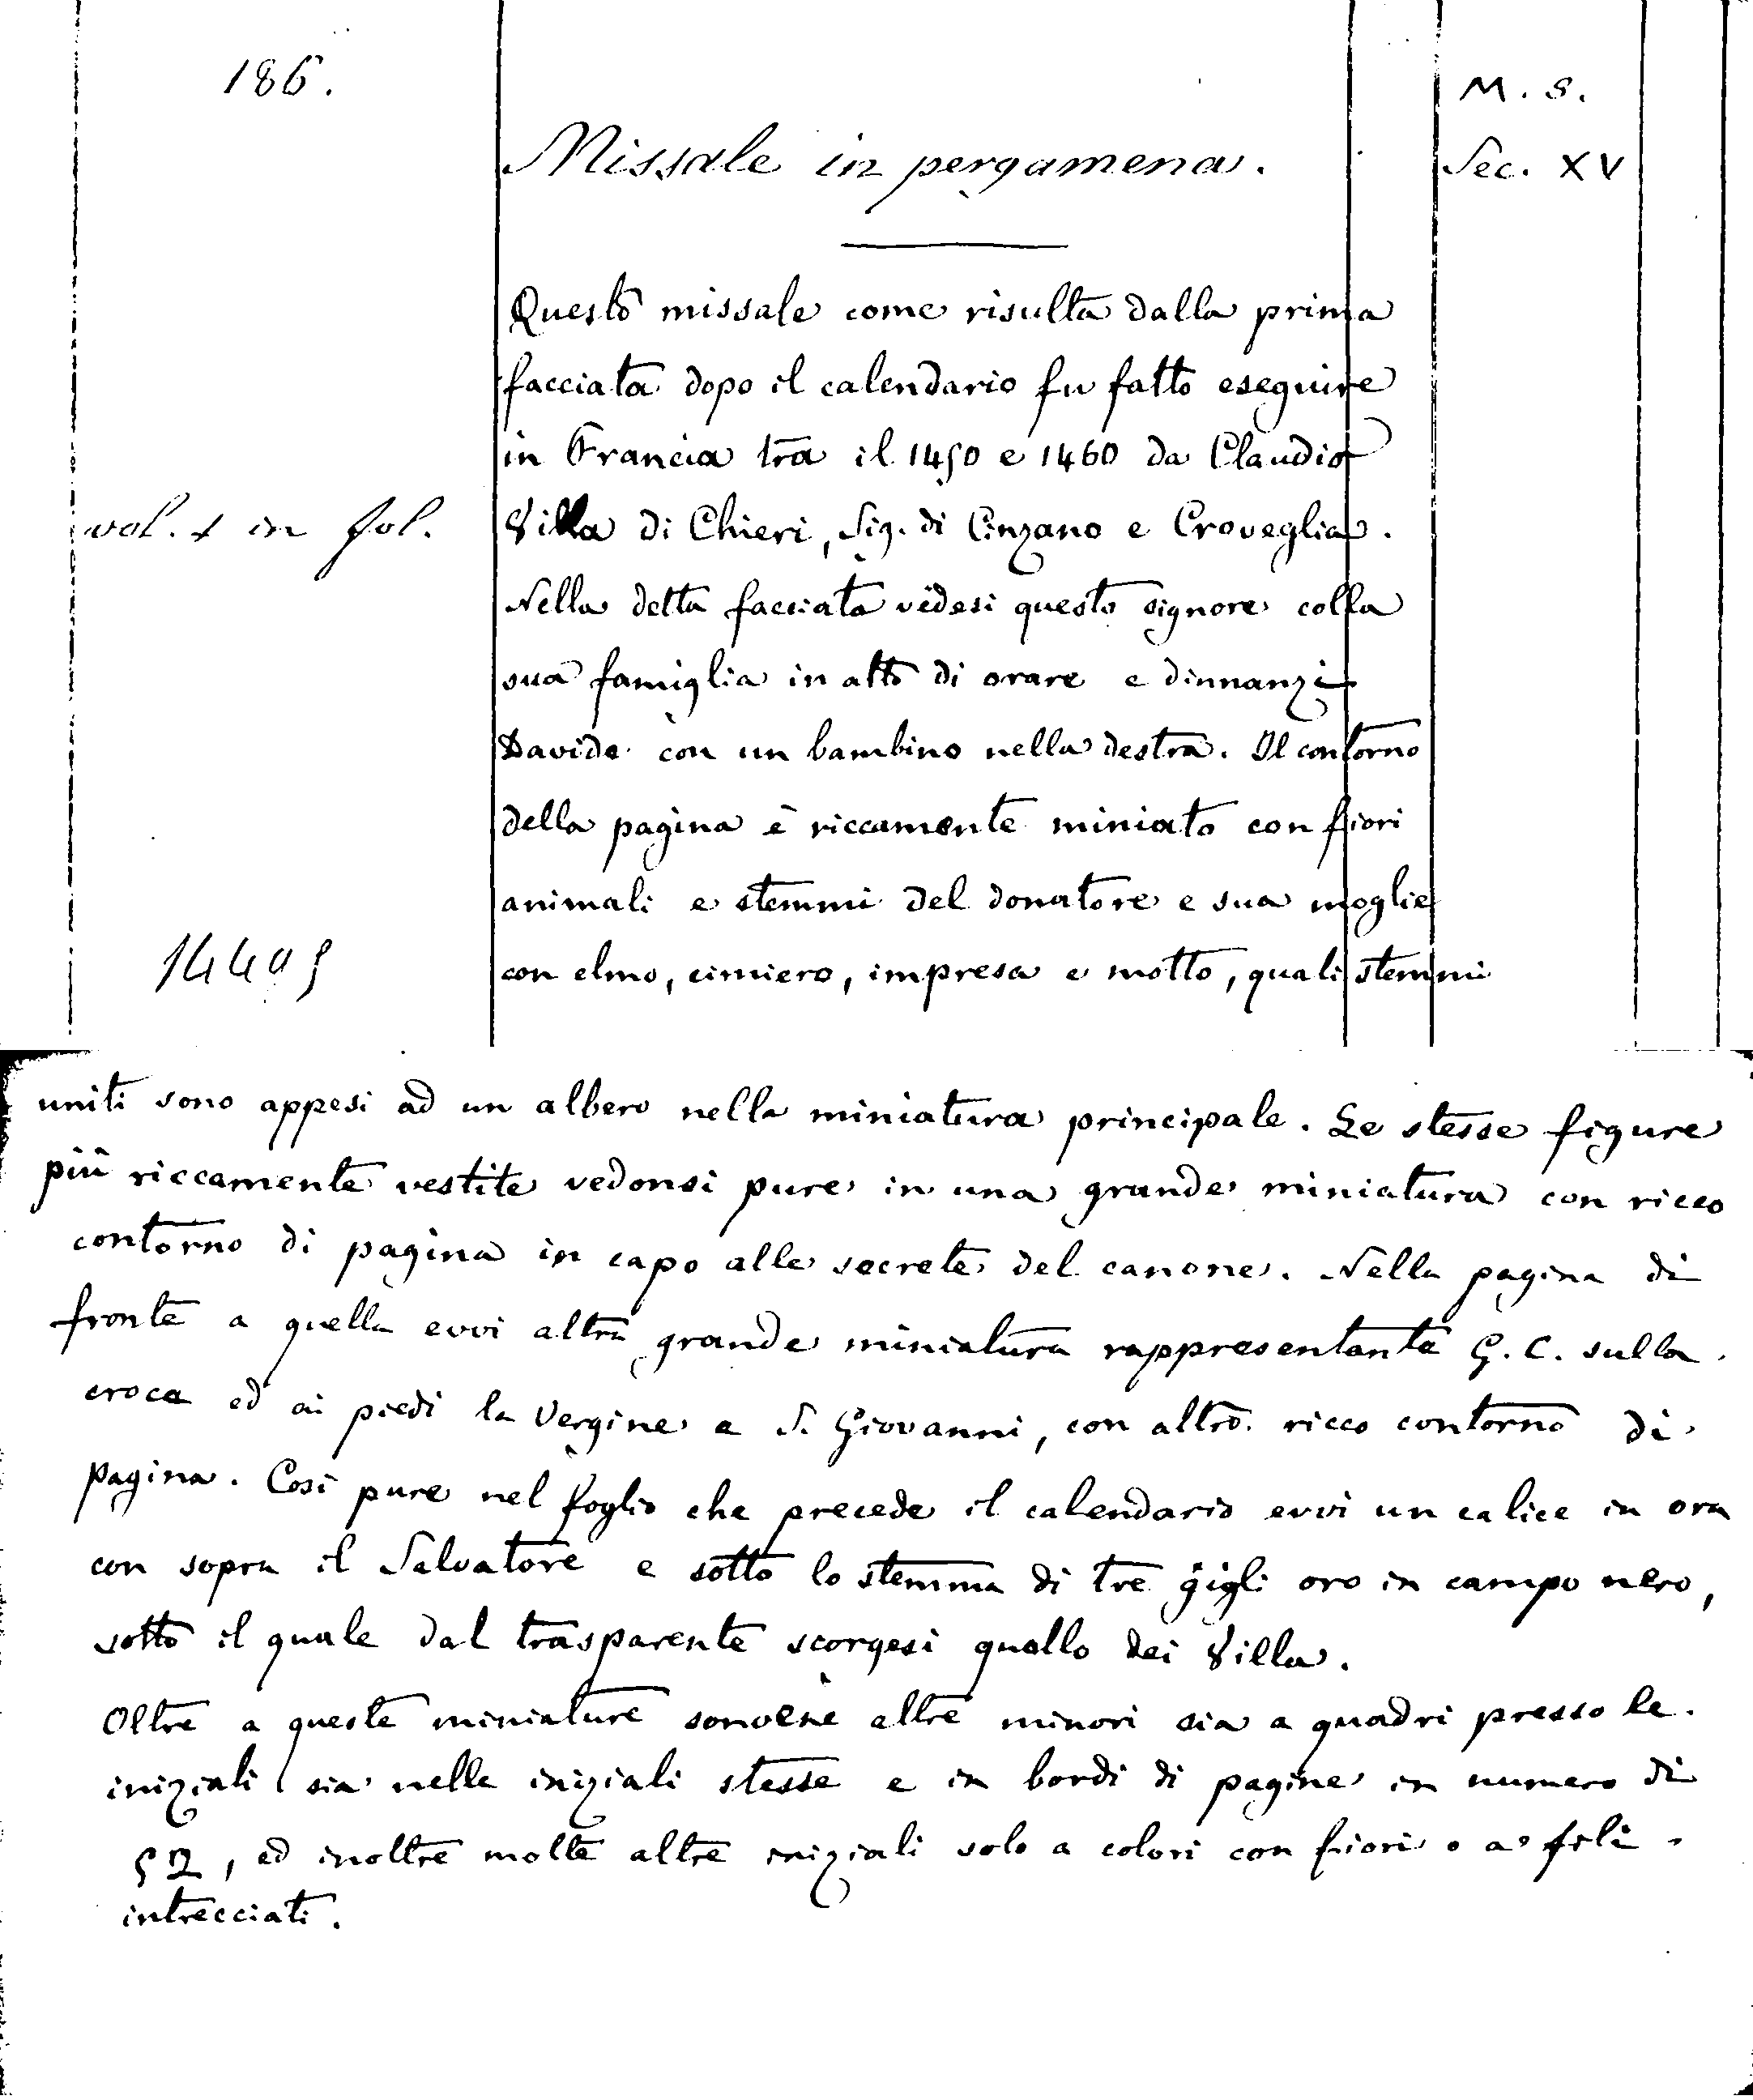 186.
M. S.
Missale in pergamena.
Sec. XV
Questo missale come risulta dalla prima
facciata dopo il calendario fu fatto eseguire
in Francia tra il 1450 e 1460 da Claudio
vol. 1 in fol.
Villa di Chieri, Sig. di Cinzano e Croveglia.
Nella detta facciata vedesi questo signore colla
sua famiglia in atto di orare e dinnanzi
Davide con un bambino nella destra. Il contorno
della pagina è riccamente miniato con fiori
animali e stemmi del donatore e sua moglie
con elmo, cimiero, impresa e motto, quali stemmi
uniti sono appesi ad un albero nella miniatura principale. Le stesse figure
più riccamente vestite vedonsi pure in una grande miniatura con ricco
contorno di pagina in capo alle secrete del canone. Nella pagina di
fronte a quella evvi altra grande miniatura rappresentante G. C. sulla
croce ed ai piedi la Vergine e S. Giovanni, con altro ricco contorno di
pagina. Così pure nel foglio che precede il calendario evvi un calice in oro
con sopra il Salvatore e sotto lo stemma di tre gigli oro in campo nero,
sotto il quale dal trasparente scorgesi quello dei Villa.
Oltre a queste miniature sonvene altre minori sia a quadri presso le
iniziali sia nelle iniziali stesse e in bordi di pagine in numero di
52, ed inoltre molte altre iniziali solo a colori con fiori o a fili
intrecciati.